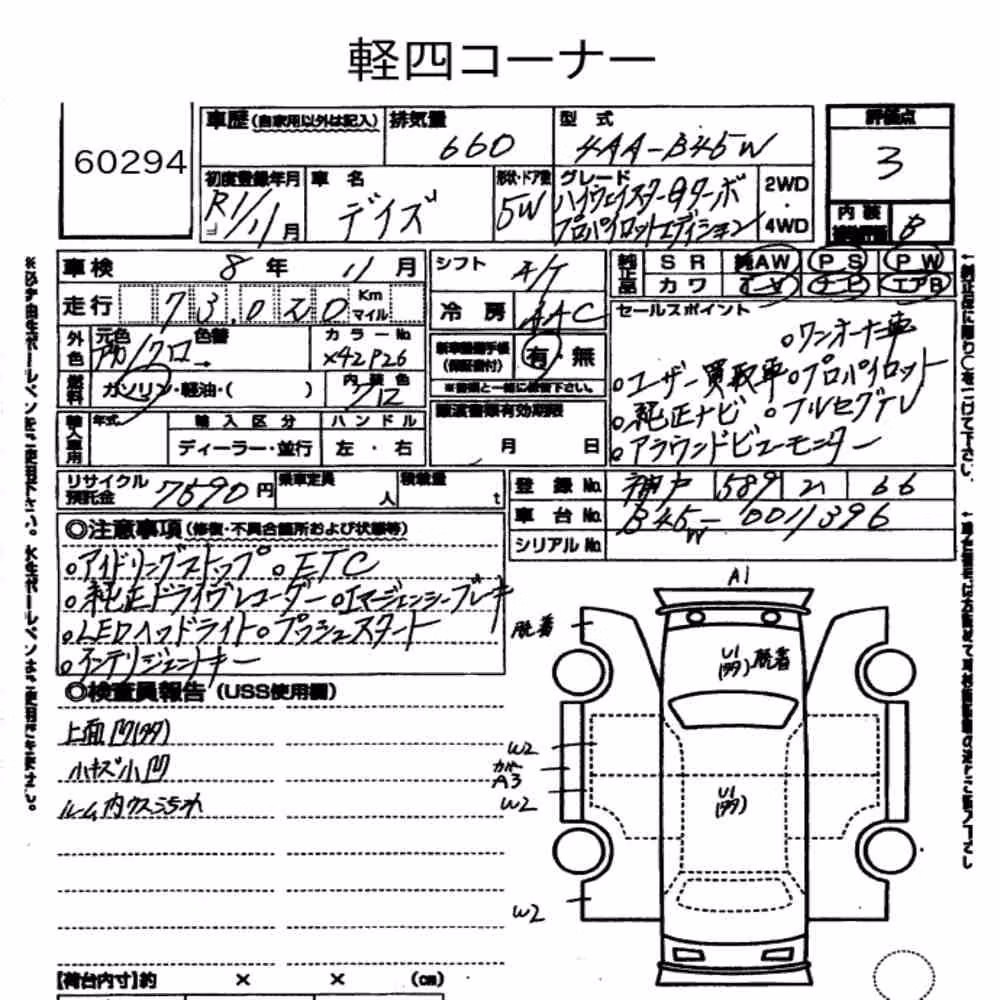 軽四コーナー
60294
車歴 (自家用以外は記入) 排気量 660 型式 4AA-B45W
評価点 3
初度登録年月 R1/11月 車名 デイズ 形状・ドア数 5W グレード ハイウェイスターGターボ プロパイロットエディション 2WD・4WD
内装 B
車検 8年 11月 シフト A/T 純正 SR 純AW PS PW
走行 73,020 Km マイル 冷房 AAC 装備 カワ ナビ TV エアB
外色 元色 アカ/クロ 色替 → カラーNo. X42P26 新車整備手帳(保証書付) 有・無
※書類と一緒に搬送下さい。
セールスポイント
○ワンオーナー車
○ユーザー買取車○プロパイロット
○純正ナビ ○フルセグTV
○アラウンドビューモニター
燃料 ガソリン・軽油・( ) 内装色 12
譲渡書類有効期限 月 日
輸入車用 年式 輸入区分 ハンドル
ディーラー・並行 左・右
リサイクル預託金 7590円 乗車定員 人 積載量 t
登録No. 神戸 589 66
車台No. B45W-0011396
シリアルNo.
◎注意事項(修復・不具合箇所および状態等)
○アイドリングストップ ○ETC
○純正ドライヴレコーダー○エマージェンシーブレーキ
○LEDヘッドライト○プッシュスタート
○インテリジェントキー
◎検査員報告 (USS使用欄)
上面凹(99)
小キズ小凹
ルーム内ウスヨゴレ
A1
脱着
U1
(99) 脱着
W2
A3
W2
U1
(99)
W2
【荷台内寸】約 × × (cm)